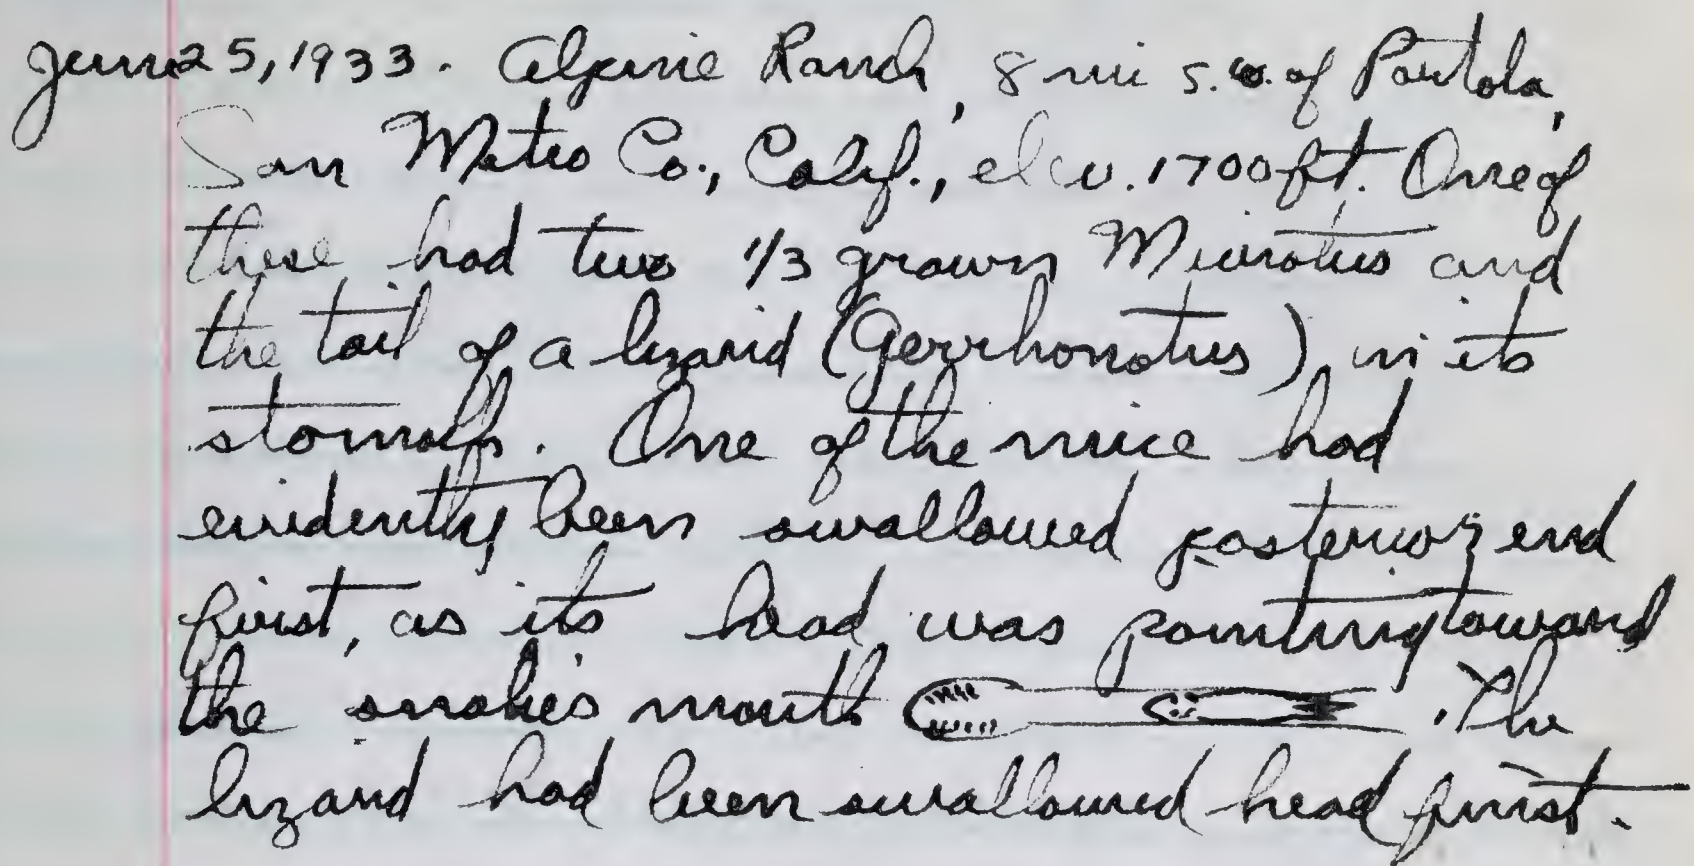 June 25, 1933. Alpine Ranch, 8 mi s.w. of Portola,
San Mateo Co., Calif., elev. 1700 ft. One of
these had two 1/3 grown Microtus and
the tail of a lizard (Gerrhonotus) in its
stomach. One of the mice had
evidently been swallowed posterior end
first, as its head was pointing toward
the snake's mouth . The
lizard had been swallowed head first.